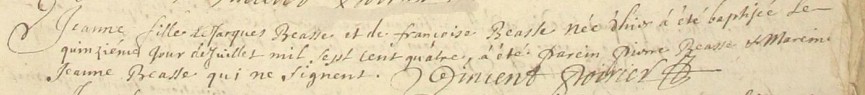 Jeanne fille de Jacques Beasse et de françoise Beasse née d'hier à été baptisée le
quinzieme jour de Juillet mil sept cent quatre, à été parein pierre Beasse et Mareine
Jeanne Beasse qui ne signent. Vincent Poirier